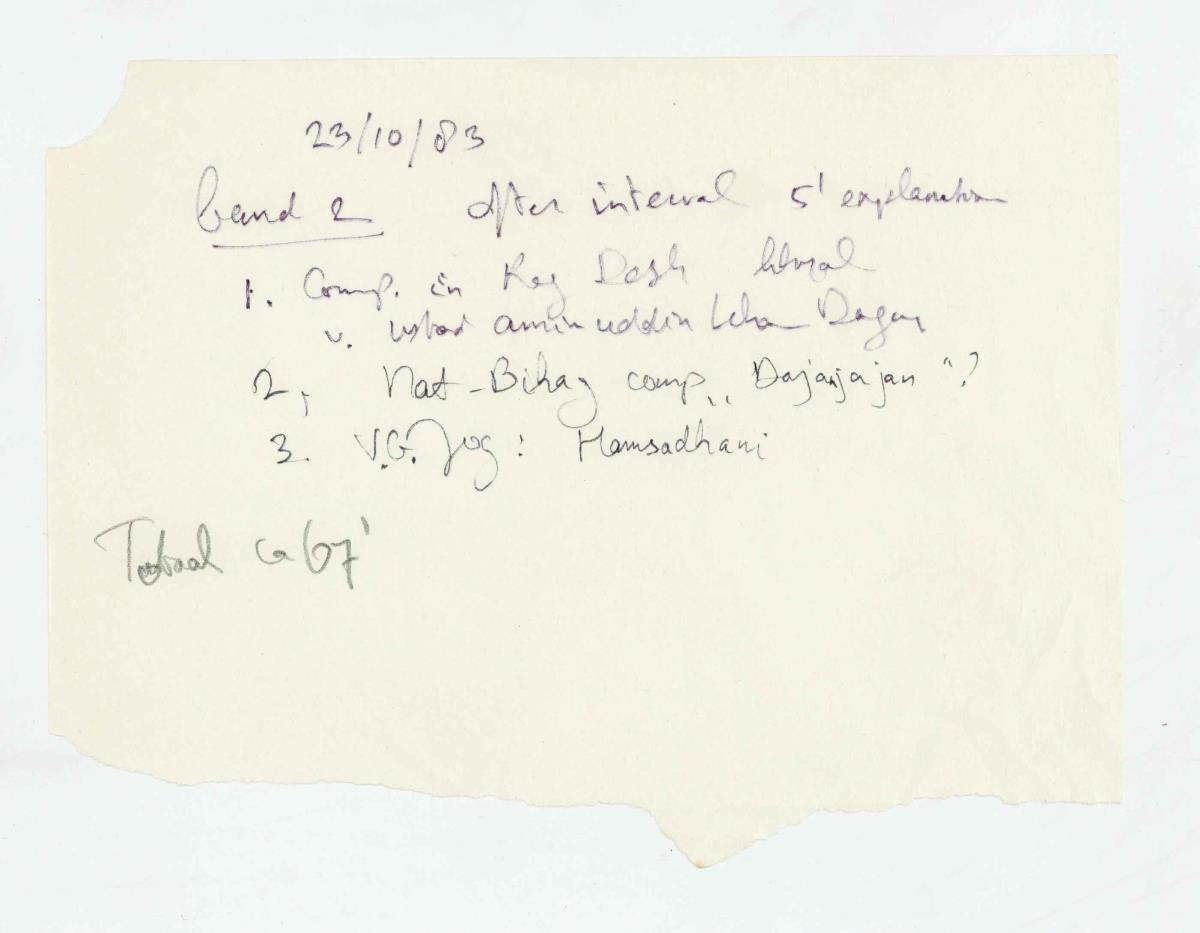 23/10/83
band 2 after interval 5' explanation
1. Comp. in Rag Desh
v. Ustad aminuddin Khan Dagar
2, Nat-Bihag comp. „Dajanjajan"?
3. V.G. Jog: Hamsadhani
Totaal ca 67'